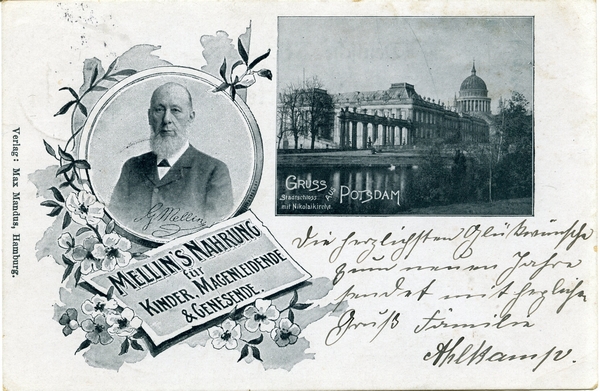 Verlag: Max Mandus, Hamburg.
G. Mellin
MELLIN'S NAHRUNG
für
KINDER, MAGENLEIDENDE
& GENESENDE.
GRUSS AUS POTSDAM
Stadtschloss
mit Nikolaikirche.
Die herzlichsten Glükwünsche
zum neuen Jahre
sendet mit herzlichen
Gruß Familie
Ahlkamp.